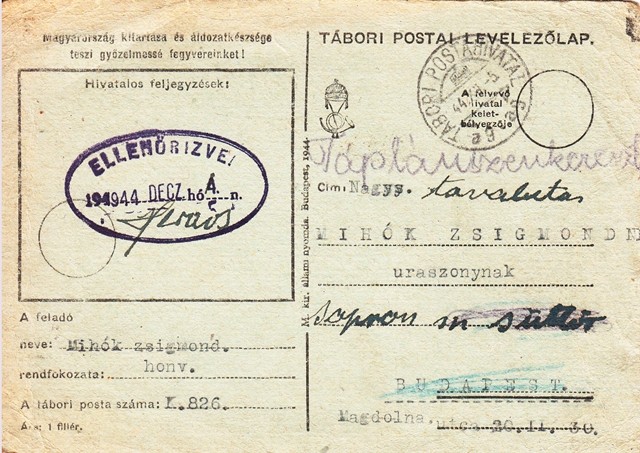 Magyarország kitartása és áldozatkészsége
teszi győzelmessé fegyvereinket!
Hivatalos feljegyzések:
ELLENŐRIZVE!
1944 DECZ. hó 4 n.
A feladó
neve: Mihók zsigmond.
rendfokozata: honv.
A tábori posta száma: K.826.
Ára: 1 fillér.
M. kir. állami nyomda. Budapest, 1944.
TÁBORI POSTAI LEVELEZŐLAP.
TÁBORI POSTAHIVATAL
A felvevő
hivatal
kelet-
bélyegzője
Táplánszentkereszt
Cím: Nagys.
MIHÓK ZSIGMONDN
uraszonynak
Sopron
BUDAPEST.
Magdolna. utca 20.II. 30.